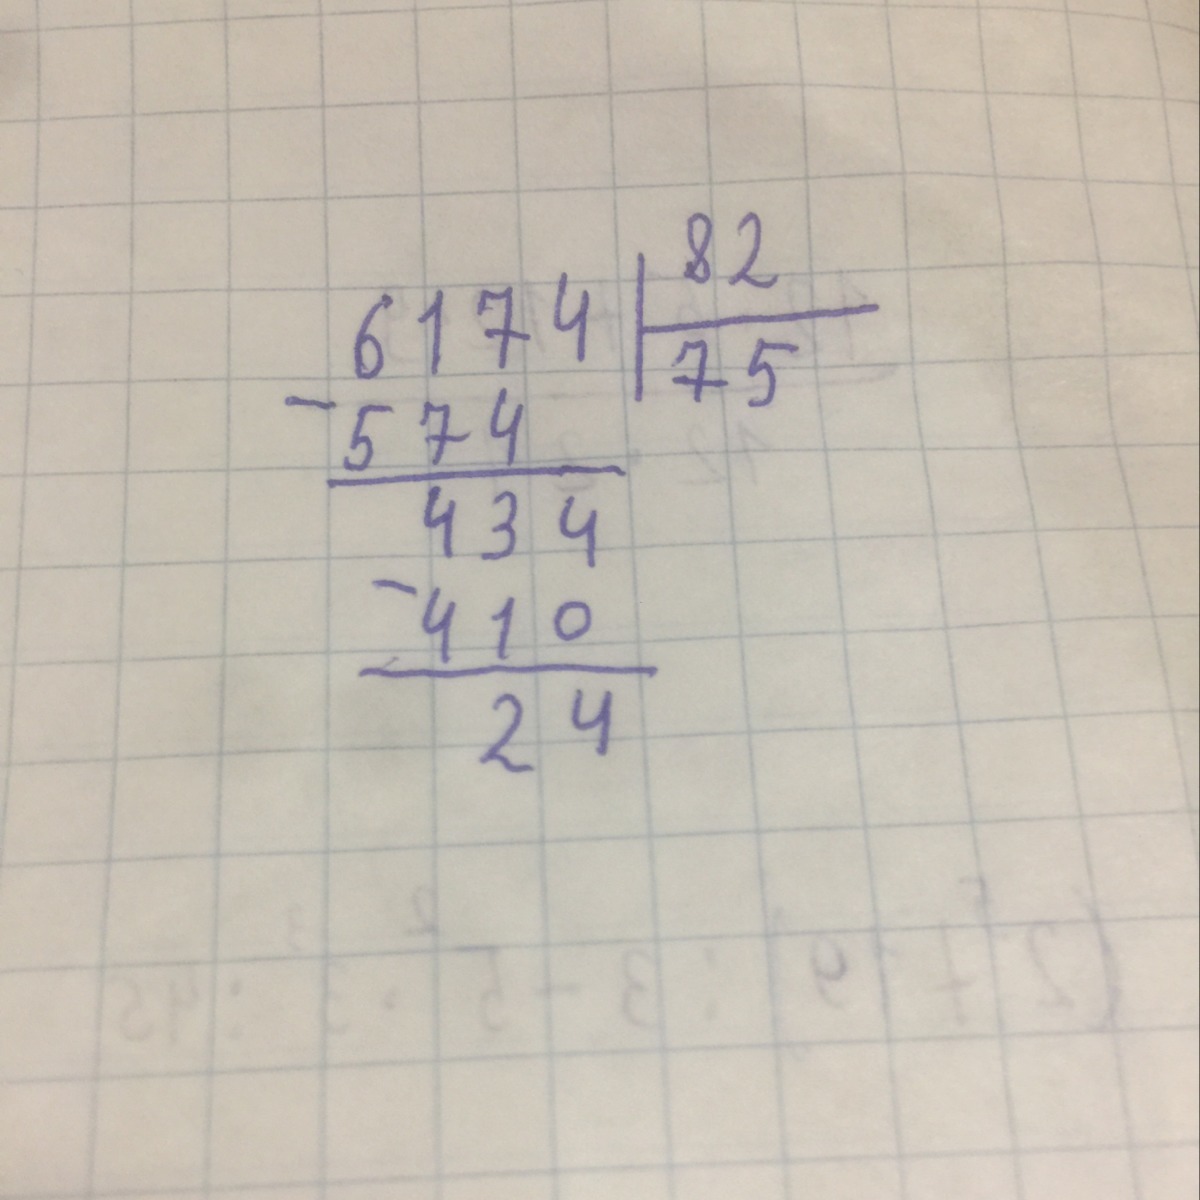 6174 | 82
75
- 574
434
- 410
24